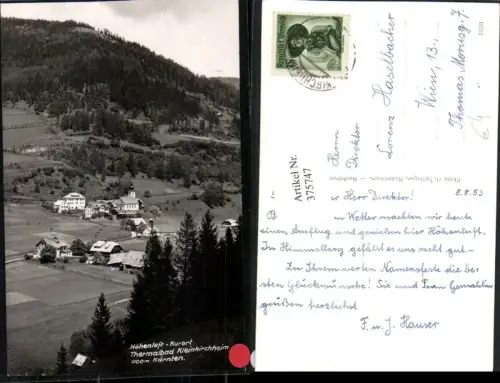 Höhenluft - Kurort
Thermalbad Kleinkirchheim
1100m Kärnten.
Artikel Nr.
375747
Herrn
Direktor
Lorenz Haselbacher
Wien, 13.
Thomas Morusg. 7
8.8.53
r Herr Direktor!
B Wetter machten wir heute
einen Ausflug und genießen hier Höhenluft.
In Himmelberg gefällt es uns recht gut.
Zu Ihrem werten Namensfeste die be-
sten Glückwünsche! Sie und Frau Gemahlin
grüßen herzlichst
F. u. J. Hauser